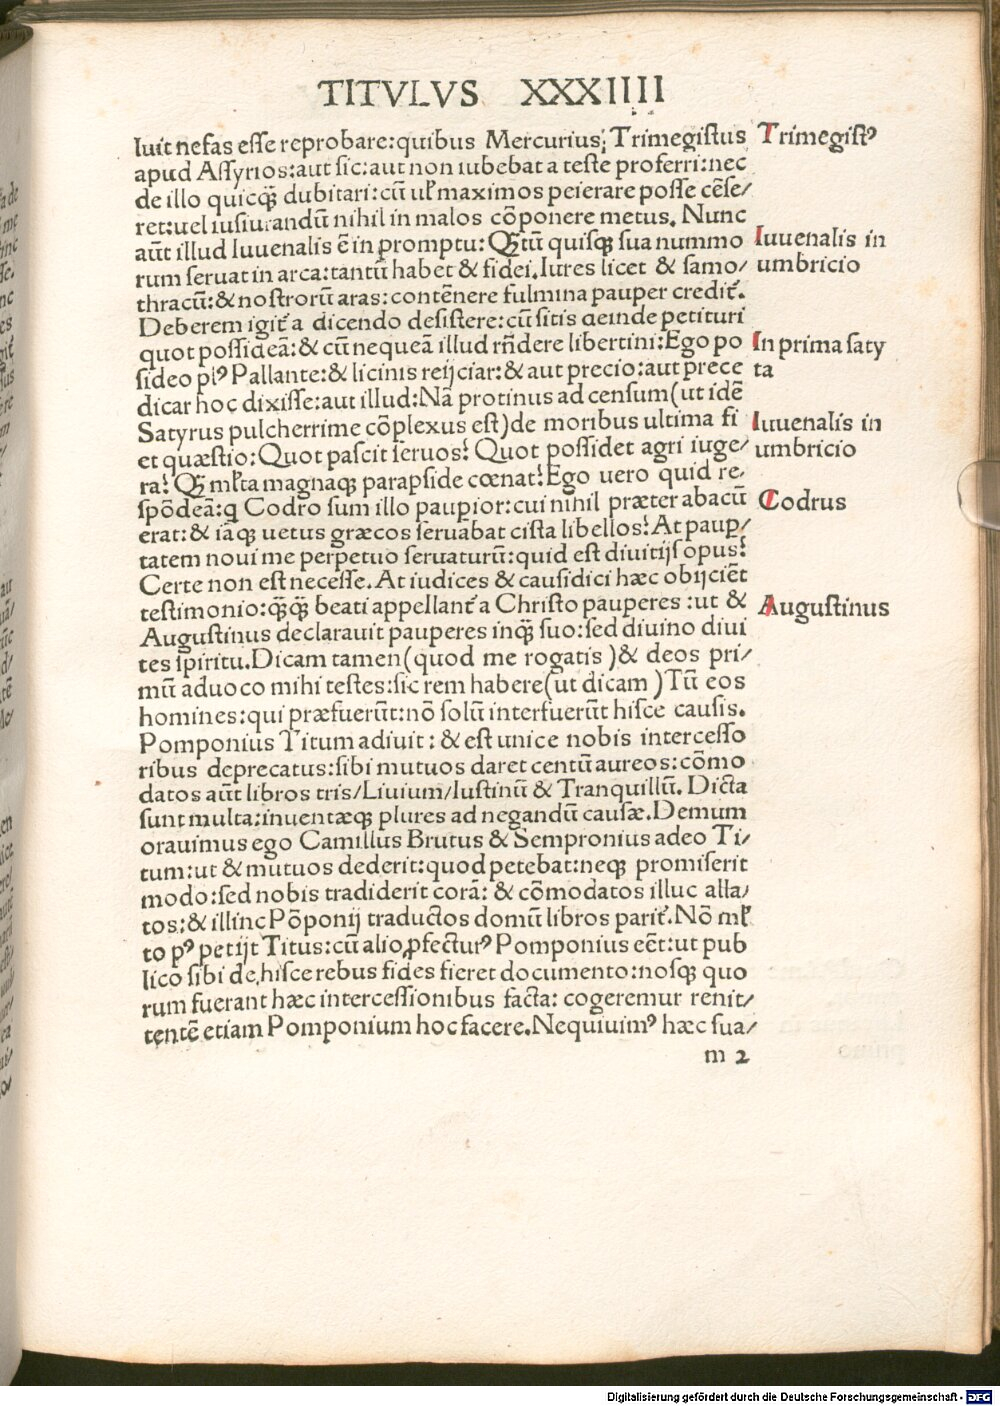 TITVLVS XXXIIII
luit nefas esse reprobare:quibus Mercurius; Trimegistus
apud Assyrios:aut sic:aut non iubebat a teste proferri:nec
de illo quicq̃ dubitari:cũ ul' maximos peierare posse cẽse/
ret:uel iusiurandũ nihil in malos cõponere metus. Nunc
aũt illud Iuuenalis ẽ in promptu: Q̃tũ quisq; sua nummo
rum seruat in arca:tantũ habet & fidei.Iures licet & samo/
thracũ:& nostrorũ aras:contẽnere fulmina pauper credit̃.
Deberem igit̃ a dicendo desistere:cũ sitis deinde petituri
quot possideã:& cũ nequeã illud rñdere libertini:Ego po
sideo plꝰ Pallante:& licinis reijciar:& aut precio:aut prece
dicar hoc dixisse:aut illud:Nã protinus ad censum(ut idẽ
Satyrus pulcherrime cõplexus est)de moribus ultima fi
et quæstio:Quot pascit seruos? Quot possidet agri iuge/
ra? Q̃ ml'ta magnaq; parapside cœnat?Ego uero quid re/
spõdeã:q Codro sum illo paupior:cui nihil præter abacũ
erat:& iãq; uetus græcos seruabat cista libellos? At paup/
tatem noui me perpetuo seruaturũ:quid est diuitijs opus?
Certe non est necesse.At iudices & causidici hæc obijciẽt
testimonio:q̃q̃ beati appellant̃ a Christo pauperes :ut &
Augustinus declarauit pauperes inq̃ suo:sed diuino diui
tes spiritu.Dicam tamen(quod me rogatis )& deos pri/
mũ aduoco mihi testes:sic rem habere(ut dicam )Tũ eos
homines:qui præfuerũt:nõ solũ interfuerũt hisce causis.
Pomponius Titum adiuit : & est unice nobis intercesso
ribus deprecatus:sibi mutuos daret centũ aureos:cõmo
datos aũt libros tris/Liuium/Iustinũ & Tranquillũ. Dicta
sunt multa:inuentæq; plures ad negandũ causæ.Demum
orauimus ego Camillus Brutus & Sempronius adeo Ti/
tum:ut & mutuos dederit:quod petebat:neq; promiserit
modo:sed nobis tradiderit corã: & cõmodatos illuc alla/
tos:& illinc Põponij traductos domũ libros parit̃.Nõ ml'
to pꝰ petijt Titus:cũ alio ꝓfecturꝰ Pomponius eẽt:ut pub
lico sibi de hisce rebus fides fieret documento:nosq; quo
rum fuerant hæc intercessionibus facta: cogeremur renit/
tentẽ etiam Pomponium hoc facere.Nequiuimꝰ hæc sua/
m 2
Trimegistꝰ
Iuuenalis in
umbricio
In prima saty
ta
Iuuenalis in
umbricio
Codrus
Augustinus
Digitalisierung gefördert durch die Deutsche Forschungsgemeinschaft - DFG